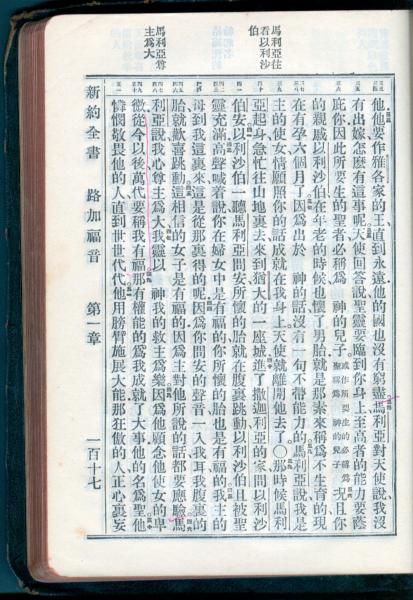 馬利亞往
看以利沙
伯
馬利亞尊
主爲大
他、他要作雅各家的王、直到永遠、他的國也沒有窮盡。馬利亞對天使說、我沒
有出嫁、怎麼有這事呢。天使回答說、聖靈要臨到你身上、至高者的能力要蔭
庇你、因此所要生的聖者、必稱爲　神的兒子。或作所要生的必稱爲聖稱爲神的兒子　況且你
的親戚以利沙伯、在年老的時候、也懷了男胎、就是那素來稱爲不生育的、現
在有孕六個月了。因爲出於　神的話、沒有一句不帶能力的。馬利亞說、我是
主的使女、情願照你的話成就在我身上。天使就離開他去了。〇那時候馬利
亞起身、急忙往山地裏去、來到猶大的一座城。進了撒迦利亞的家、問以利沙
伯安。以利沙伯一聽馬利亞問安、所懷的胎就在腹裏跳動、以利沙伯且被聖
靈充滿。高聲喊着說、你在婦女中是有福的、你所懷的胎也是有福的。我主的
母到我這裏來、這是從那裏得的呢。因爲你問安的聲音一入我耳、我腹裏的
胎就歡喜跳動。這相信的女子是有福的、因爲主對他所說的話都要應驗。馬
利亞說、我心尊主爲大、我靈以　神我的救主爲樂。因爲他顧念他使女的卑
微。從今以後、萬代要稱我有福。那有權能的爲我成就了大事、他的名爲聖。他
憐憫敬畏他的人、直到世世代代。他用膀臂施展大能。那狂傲的人正心裏妄
新約全書　路加福音　第一章　一百十七